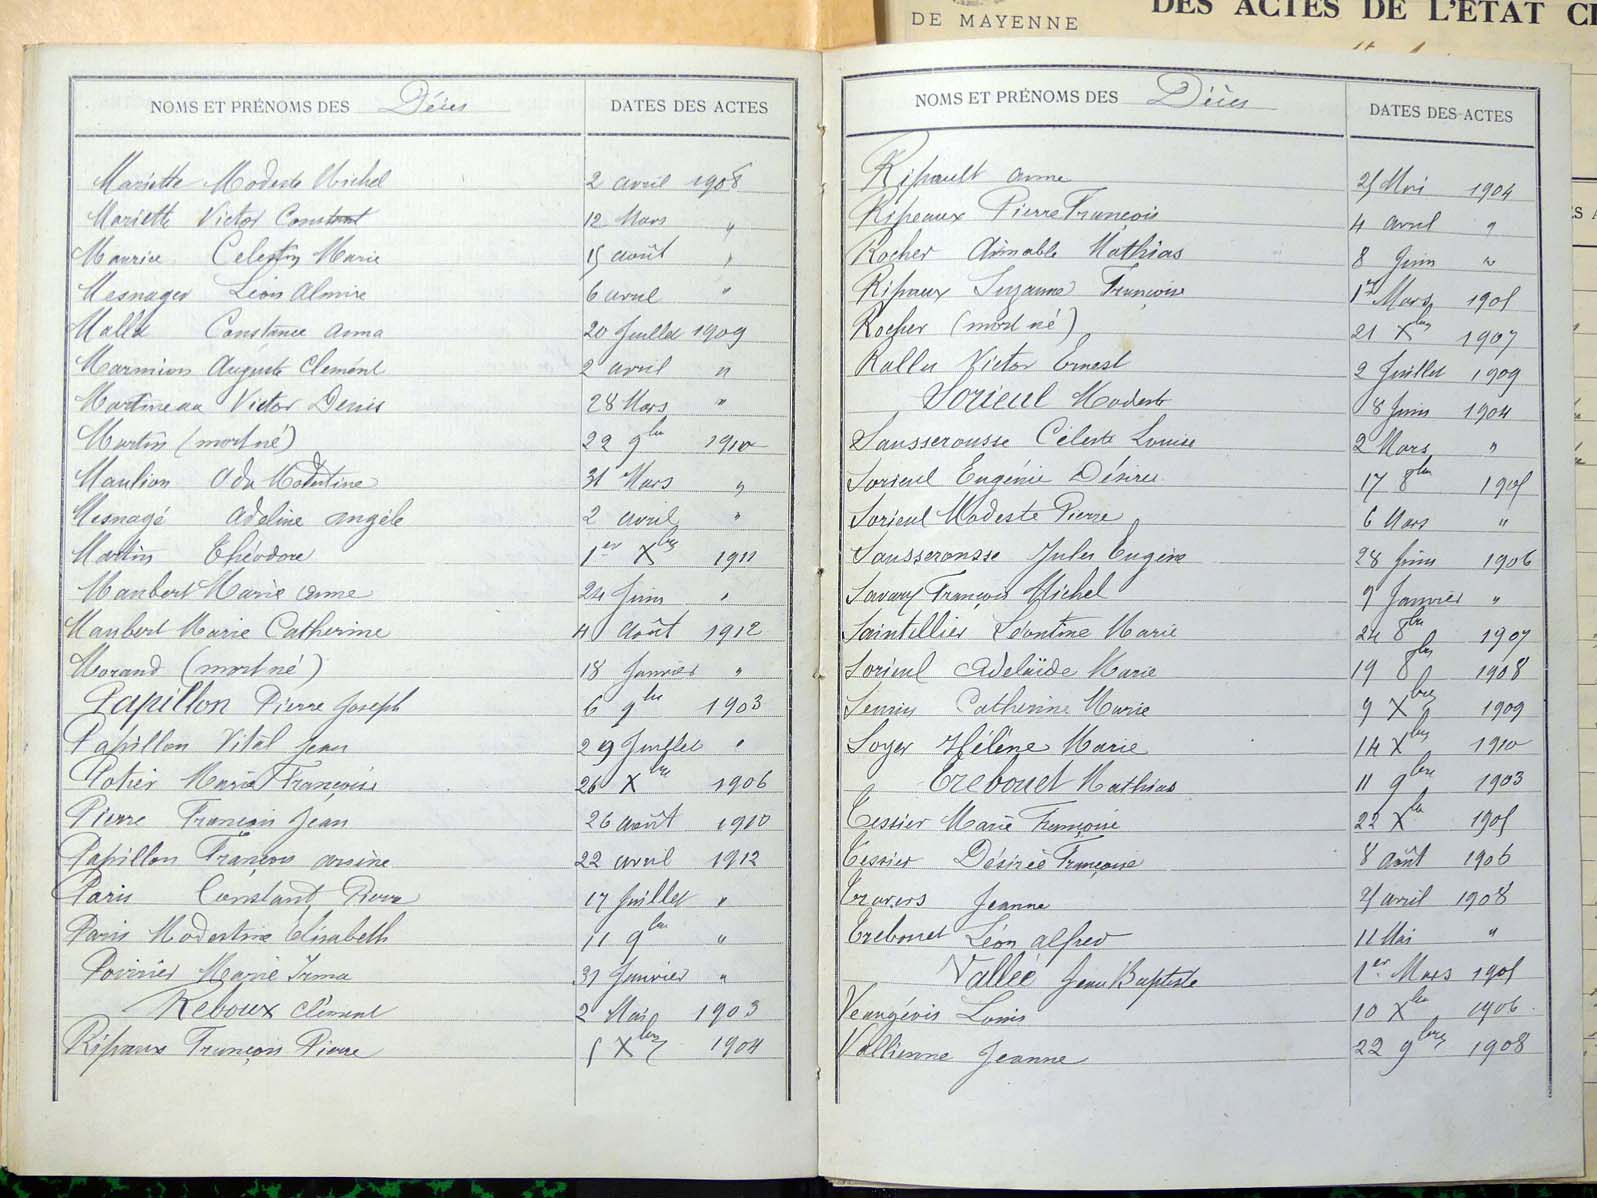 DE MAYENNE
DES ACTES DE L'ÉTAT CI
NOMS ET PRÉNOMS DES Décès DATES DES ACTES
Mariette Modeste Michel 2 avril 1908
Mariette Victor Constant 12 Mars "
Maurice Celestin Marie 15 août "
Mesnager Léon Almire 6 avril "
Mallet Constance anna 20 Juillet 1909
Marmion Auguste Clément 2 avril "
Martineau Victor Denis 28 Mars "
Martin (mort né) 22 9bre 1910
Maulion Oda Modestine 31 Mars "
Mesnagé Adeline angèle 2 avril "
Martin Théodore 1er Xbre 1911
Manbert Marie anne 24 Juin "
Manbert Marie Catherine 4 août 1912
Morand (mort né) 18 Janvier "
Papillon Pierre Joseph 6 9bre 1903
Papillon Vital Jean 29 Juillet "
Potier Marie Françoise 26 Xbre 1906
Pierre François Jean 26 août 1910
Papillon François arsène 22 avril 1912
Paris Constant Pierre 17 Juillet "
Paris Modestine Elisabeth 11 9bre "
Poirrier Marie Irma 31 Janvier "
Reboux Clément 2 Mai 1903
Ripaux François Pierre 5 Xbre 1904
NOMS ET PRÉNOMS DES Décès DATES DES ACTES
Ripault anne 25 Mai 1904
Ripeaux Pierre François 4 avril "
Rocher Aimable Mathias 8 Juin "
Ripaux Suzanne Françoise 1er Mars 1905
Rocher (mort né) 21 Xbre 1907
Rallu Victor Ernest 2 Juillet 1909
Sorieul Modeste 8 Juin 1904
Sausserousse Céleste Louise 2 Mars "
Sorieul Eugénie Désirée 17 8bre 1905
Sorieul Modeste Pierre 6 Mars "
Sausserousse Jules Eugène 28 Juin 1906
Savary François Michel 9 Janvier "
Saintellier Léontine Marie 24 8bre 1907
Sorieul Adelaïde Marie 19 8bre 1908
Catherine Marie 9 Xbre 1909
Soyer Hélène Marie 14 Xbre 1910
Trebouet Mathias 11 9bre 1903
Tessier Marie Françoise 22 Xbre 1905
Tessier Désirée Françoise 8 août 1906
Travers Jeanne 25 avril 1908
Trebouet Léon alfred 11 Mai "
Vallée Jean Baptiste 1er Mars 1905
Veaugéois Louis 10 Xbre 1906
Vallienne Jeanne 22 9bre 1908